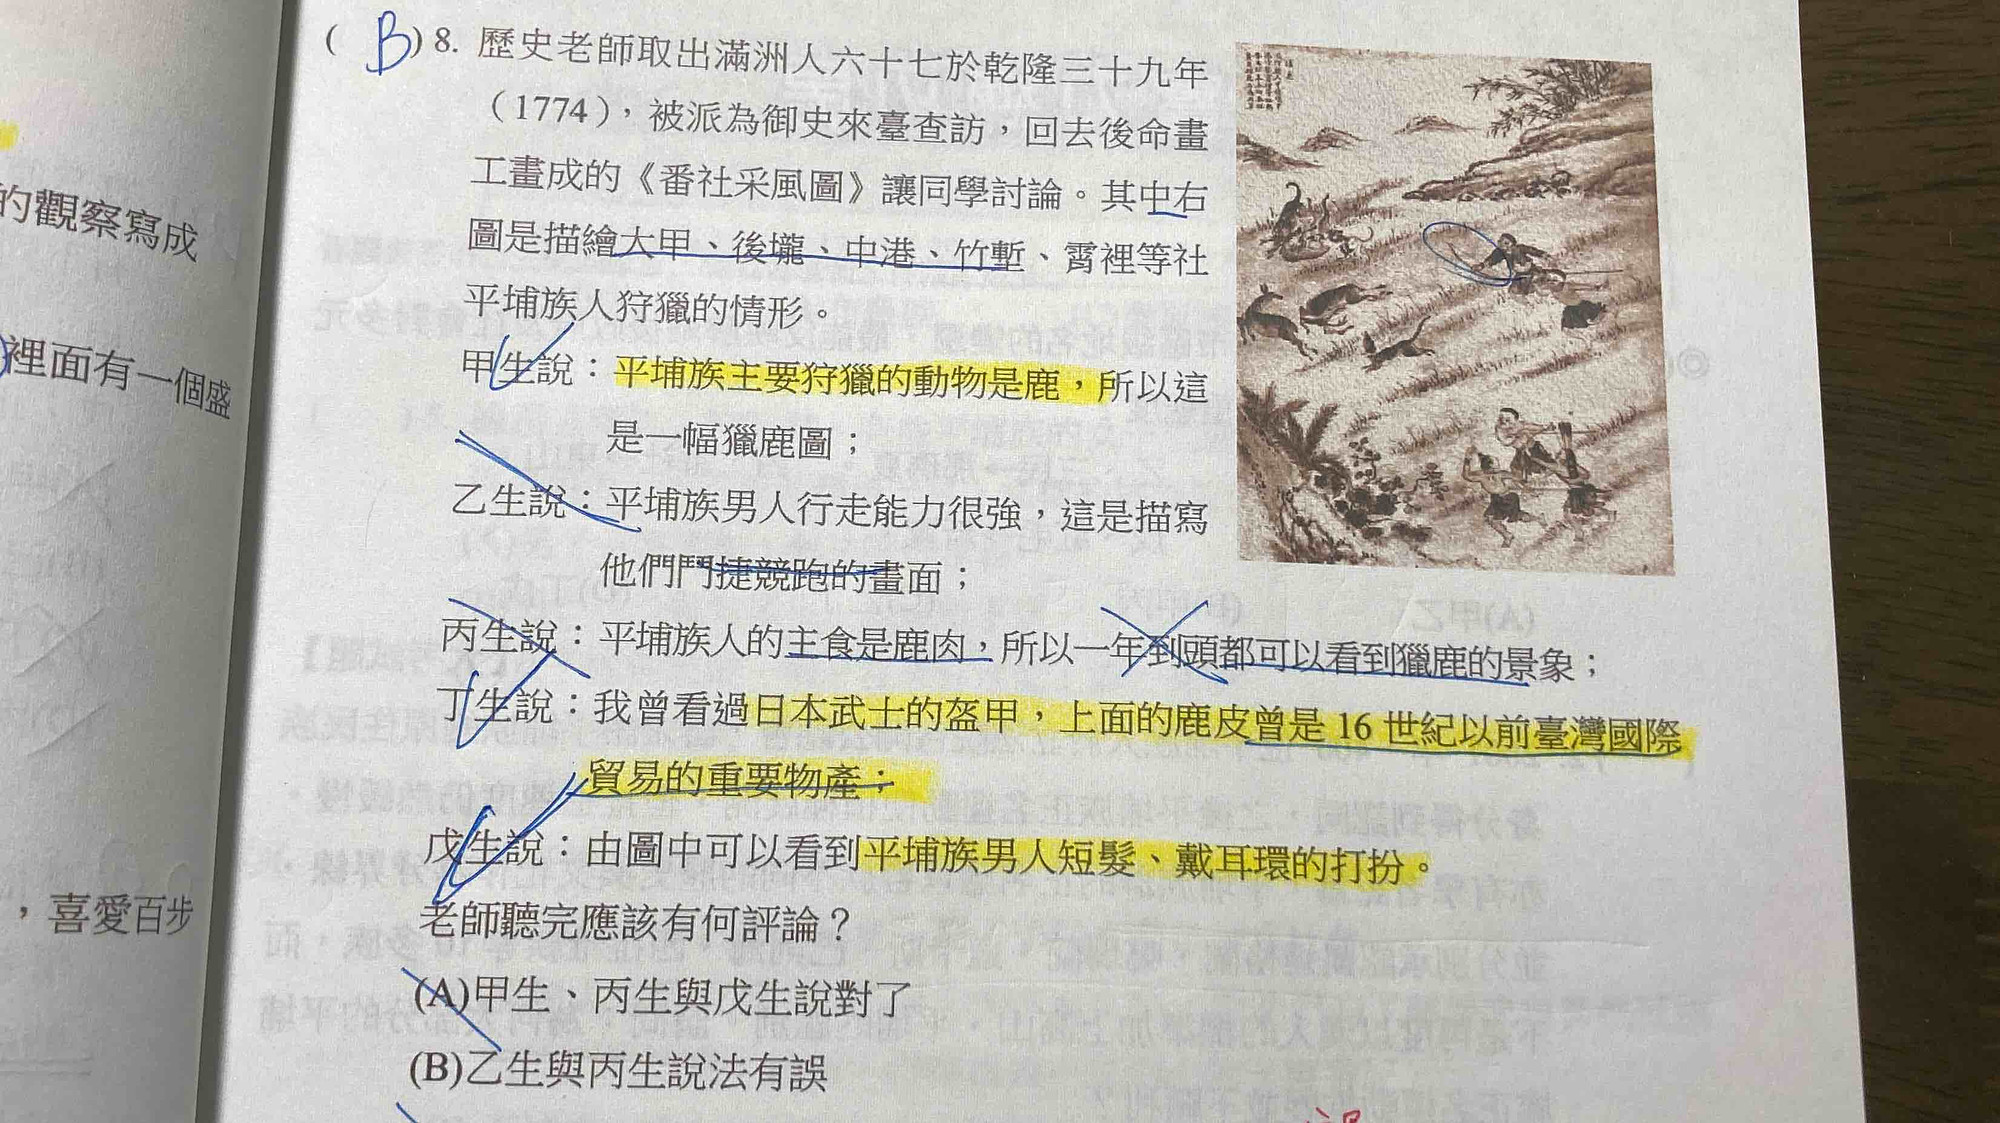 ( B ) 8. 歷史老師取出滿洲人六十七於乾隆三十九年
（1774），被派為御史來臺查訪，回去後命畫
工畫成的《番社采風圖》讓同學討論。其中右
圖是描繪大甲、後壠、中港、竹塹、霄裡等社
平埔族人狩獵的情形。
甲生說：平埔族主要狩獵的動物是鹿，所以這
是一幅獵鹿圖；
乙生說：平埔族男人行走能力很強，這是描寫
他們鬥捷競跑的畫面；
丙生說：平埔族人的主食是鹿肉，所以一年到頭都可以看到獵鹿的景象；
丁生說：我曾看過日本武士的盔甲，上面的鹿皮曾是 16 世紀以前臺灣國際
貿易的重要物產；
戊生說：由圖中可以看到平埔族男人短髮、戴耳環的打扮。
老師聽完應該有何評論？
(A)甲生、丙生與戊生說對了
(B)乙生與丙生說法有誤
的觀察寫成
裡面有一個盛
，喜愛百步